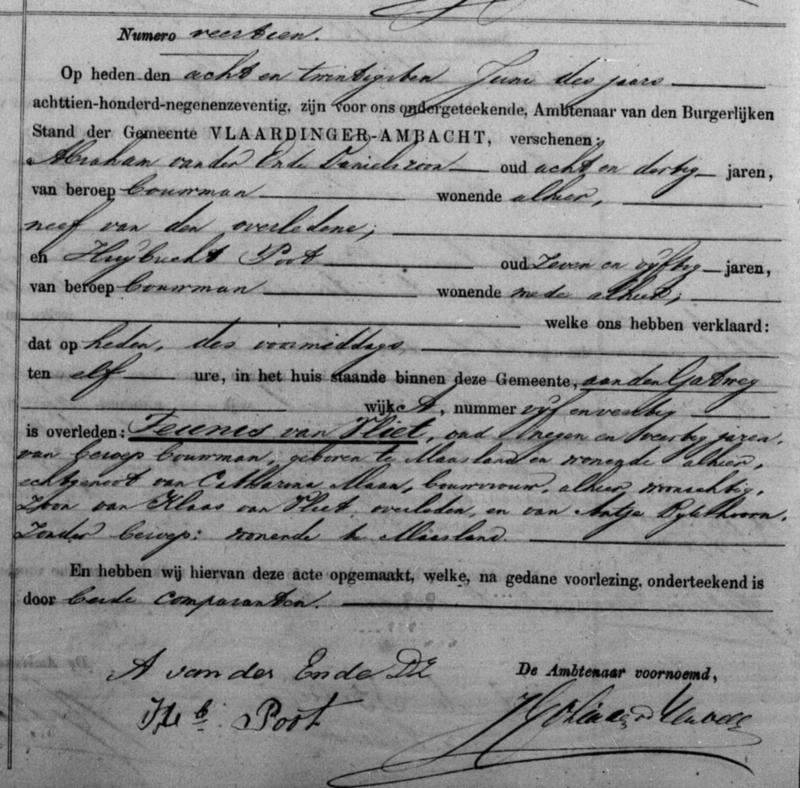 Numero veertien.
Op heden den acht en twintigsten Juni des jaars
achttien-honderd-negenenzeventig, zijn voor ons ondergeteekende, Ambtenaar van den Burgerlijken
Stand der Gemeente VLAARDINGER-AMBACHT, verschenen:
Abraham van der Ende Danielszoon oud acht en dertig jaren,
van beroep bouwman wonende alhier,
neef van den overledene;
en Huybrecht Poot oud zeven en vijftig jaren,
van beroep bouwman wonende mede alhier;
welke ons hebben verklaard:
dat op heden, des voormiddags
ten elf ure, in het huis staande binnen deze Gemeente, aan den Gatweg
wijk A, nummer vijf en veertig
is overleden: Teunis van Vliet, oud negen en veertig jaren,
van beroep bouwman, geboren te Maasland en wonende alhier,
echtgenoot van Catharina Maan, bouwvrouw, alhier woonachtig,
Zoon van Klaas van Vliet, overleden, en van Antje
Zonder beroep; wonende te Maasland.
En hebben wij hiervan deze acte opgemaakt, welke, na gedane voorlezing, onderteekend is
door beide comparanten.
A van der Ende DZ
De Ambtenaar voornoemd,
Hb. Poot